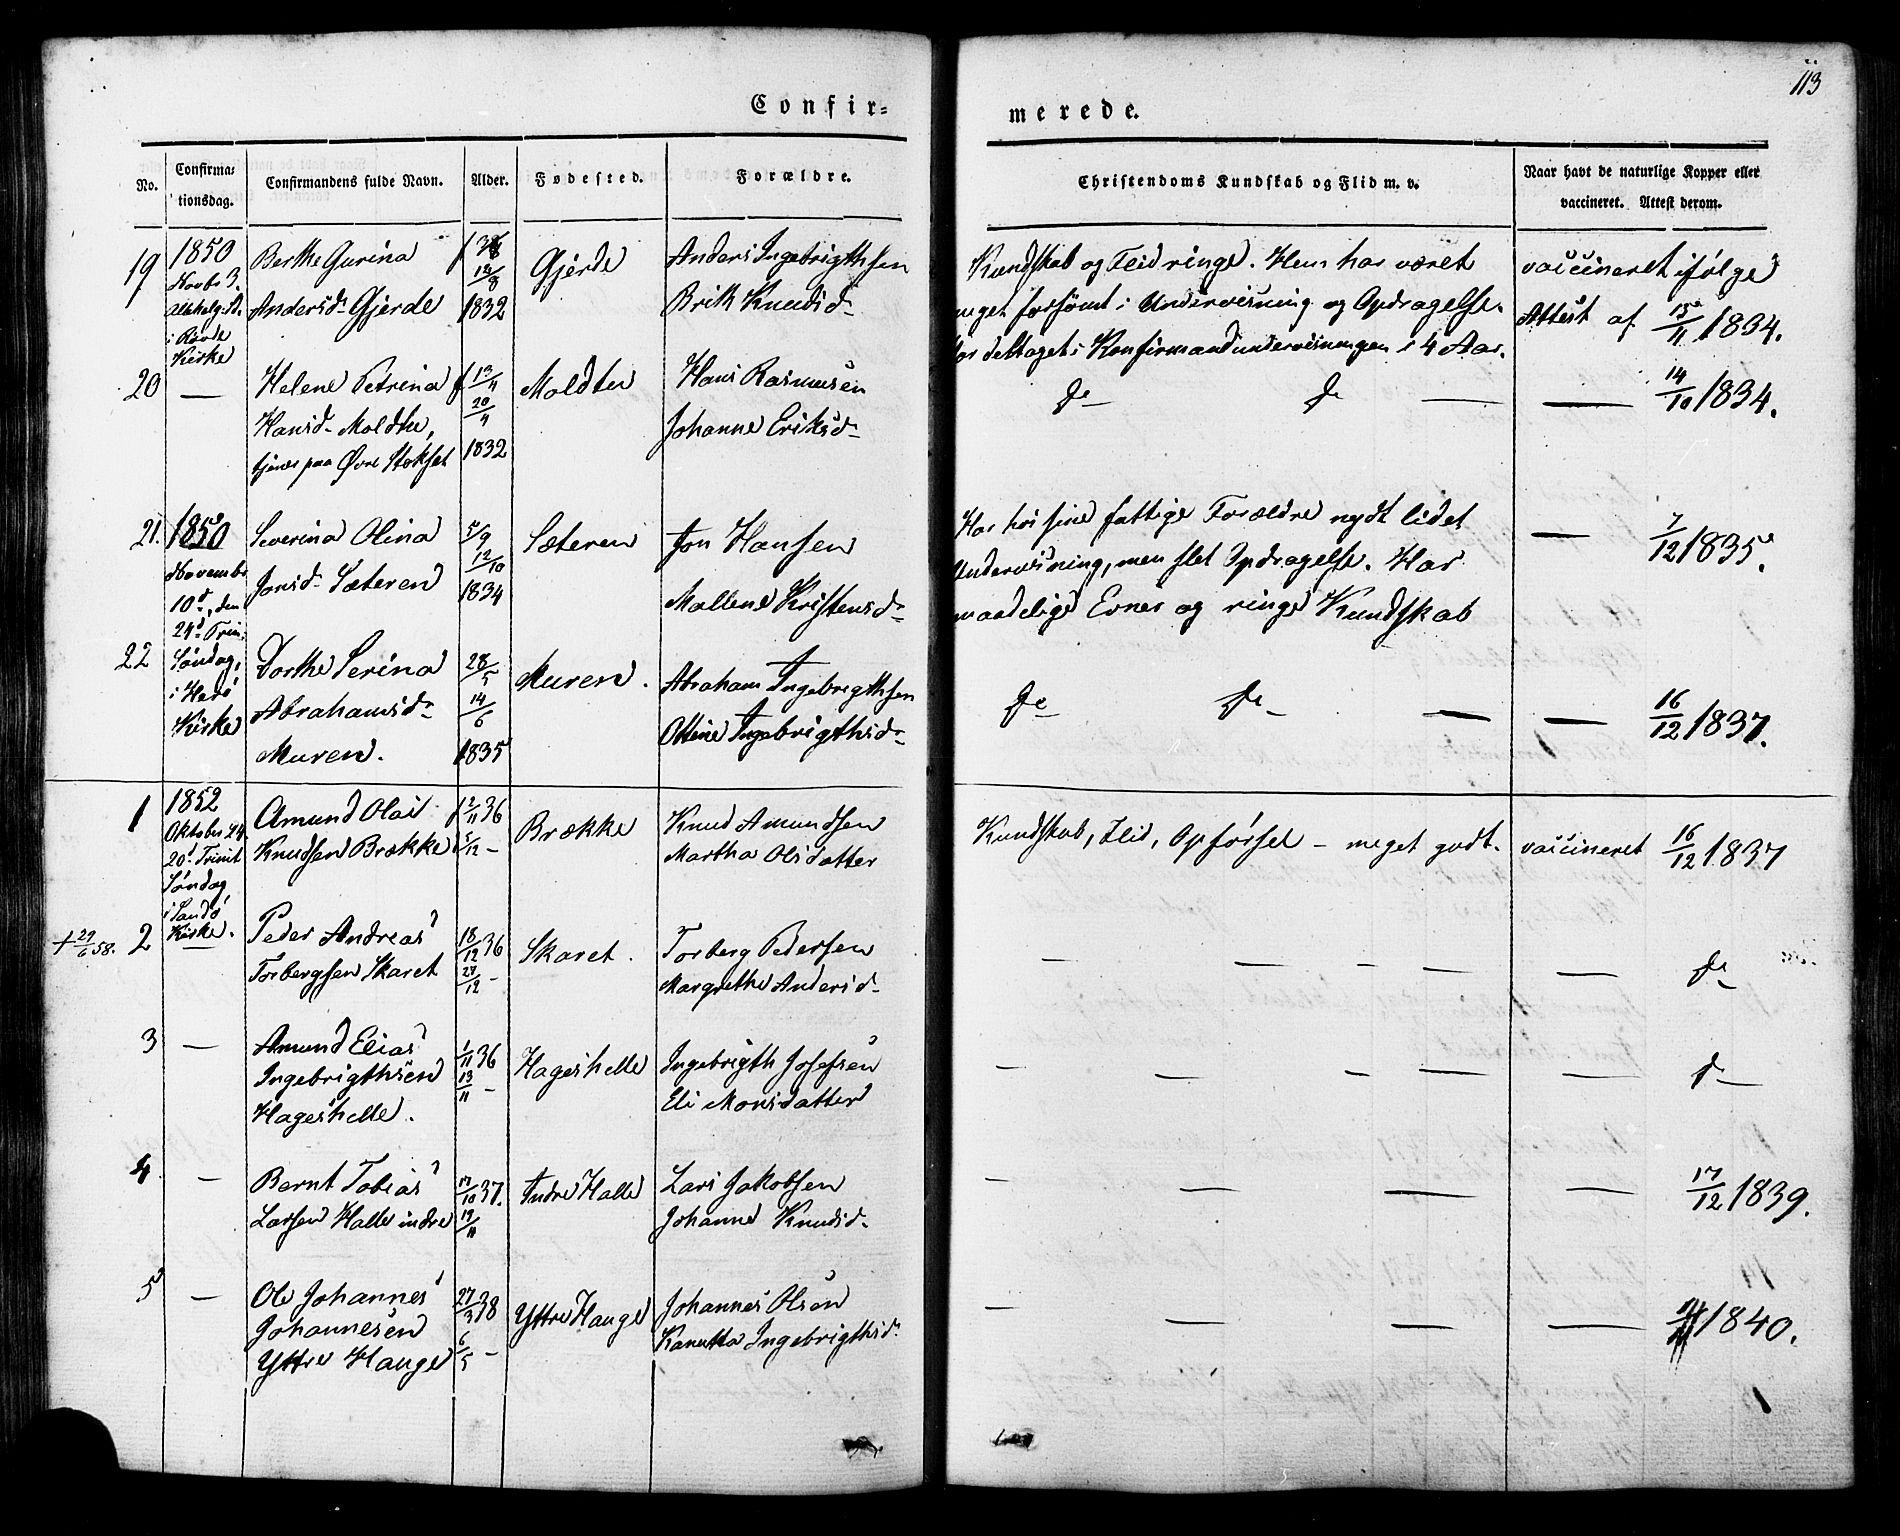 113
Confir= merede.
No. Confirma= tionsdag. Confirmandens fulde Navn. Alder. Fødested. Forældre. Christendoms Kundskab og Flid m. v. Naar havt de naturlige Kopper eller vaccineret. Attest derom.
19 1850 Berthe Gurina Gjerde Anders Ingebrigthsen Kundskab og Flid ringe. Hun har været vaccineret ifølge
Novbr 3. Andersd. Gjerde 1832 Knudsd. meget forsømt i Undervisning og Opdragelse. Attest af 15/11 1834.
i Røvde Kirke deltaget i Konfirmandundervisningen i 4 Aar.
20 — Helene Petrina 13/4 Moldten Hans Rasmusen de de — — 14/10 1834.
Hansd. Moldte, 20/4 Johanne Eriksd.
tjener paa Øvre Stokset 1832
21. 1850 Severina Olina 5/9 Sæteren Jon Hansen Har hos sine fattige Forældre nydt lidet — 7/12 1835.
Novembr Jonsd. Sæteren 12/10 1834 Mallene Kristensd. Undervisning, men slet Opdragelse. Har
10de, den maadelige Evner og ringe Kundskab
24d. Trin.
22 Søndag, Dorthe Serina 28/5 Muren. Abraham Ingebrigthsen de de — — 16/12 1837.
i Herø Abrahamsd. 14/6 Ottine Ingebrigthsd.
Kirke Muren. 1835
1 1852 Amund Olai 2/11 36 Brække Knud Amundsen Kundskab, Flid, Opførsel – meget godt. vaccineret 16/12 1837
Oktober 24 Knudsen Brække 5/12 – Martha Olsdatter
20d. Trinit
Søndag
i Sandø
Kirke.
† 29/6 58. 2 — Peder Andreas 18/12 36 Skaret. Torberg Pedersen — — – — — de
Torbergsen Skaret 27/12 – Margrethe Andersd.
3 — Amund Elias 1/11 36 Hageshelle Ingebrigth Josefsen — — – — — d —
Ingebrigthsen 13/11 – Eli Monsdatter
Hageshelle.
4 — Bernt Tobias 17/10 37. Indre Halle Lars Jakobsen — — — — 17/12 1839.
Larsen Halle indre 19/11 Johanne Knudsd.
5 — Ole Johannes 27/3 38 Yttre Hauge Johannes Olsen — — — — 1840.
Johannesen 6/5 – Kanutta Ingebrigthsd.
Yttre Hauge